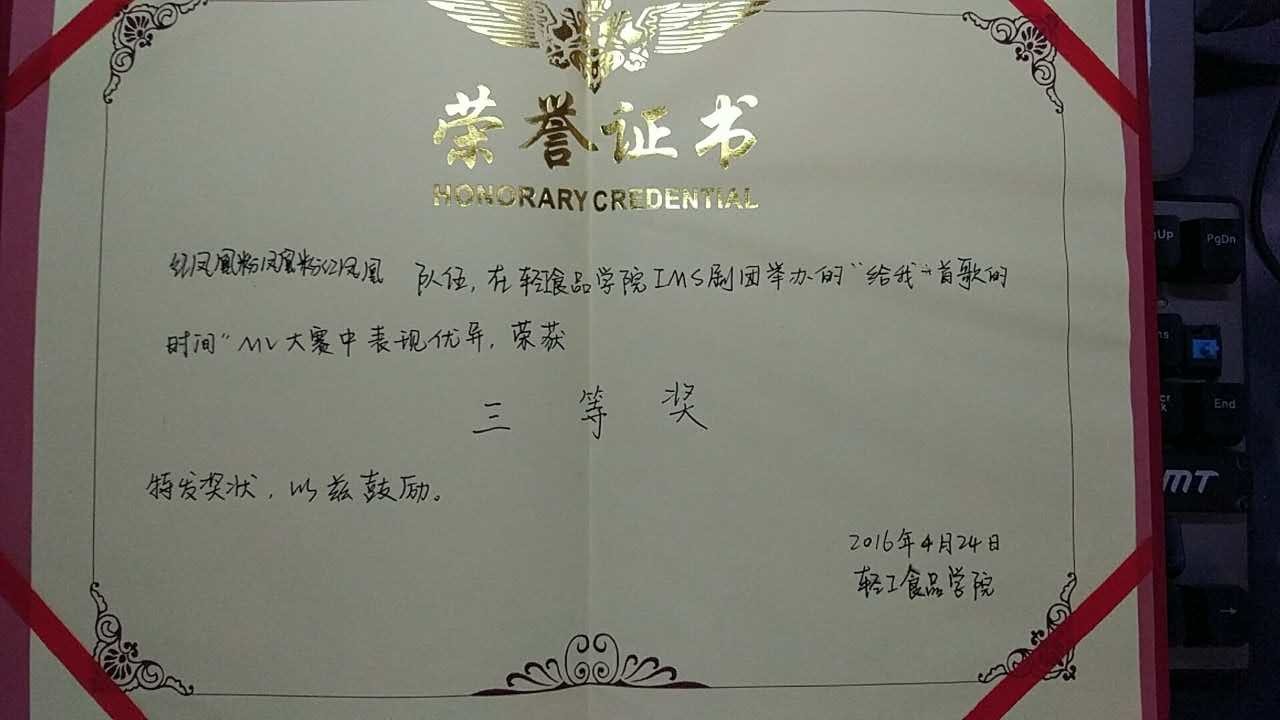 荣誉证书
HONORARY CREDENTIAL
红凤凰粉凤凰粉红凤凰 队伍，在轻食品学院IMS剧团举办的“给我一首歌的
时间”MV大赛中表现优异，荣获
三等奖
特发奖状，以兹鼓励。
2016年4月24日
轻工食品学院
PgUp
PgDn
End
MT
→